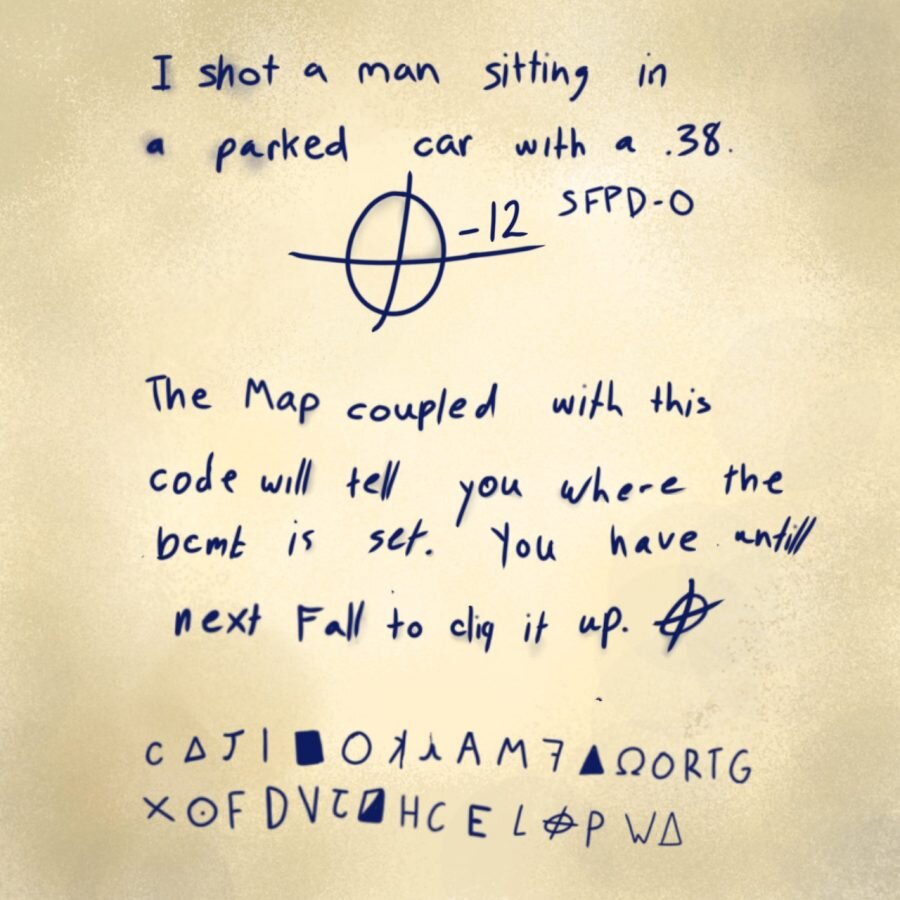 I shot a man sitting in
a parked car with a .38.
-12 SFPD-0
The Map coupled with this
code will tell you where the
bcmt is set. You have untill
next Fall to dig it up.
C Δ J I ■ O ʞ ⅄ A M ꟻ ▲ Ω O R T G
X ⊙ F D V Ʇ ◪ H C E L ⌖ P W Δ